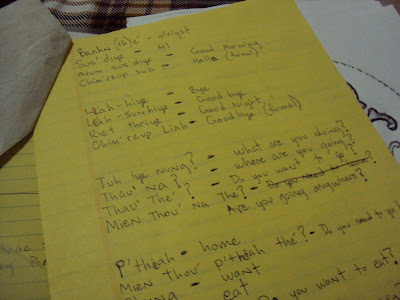 Baahn (ch) é - alright
Sus' diye - Hi
Arun sus' diye - Good Morning
Chim reup sua - Hello (formal)
Leah-hiye - Bye
Leah-sunhiye - Good bye
Riet thrive - Good Night
Chim reup Liah - Goodbye (formal)
Tuh iye nung? - what are you doing?
Thau' Na? - where are you going?
Thau' Thé? - Do you want to go?
Mien Thou' Na The? - Are you going anywhere?
P'thèah - home
Mien thou' p'theah thé? - Do you want to go
- want
eat
Do you want to eat?